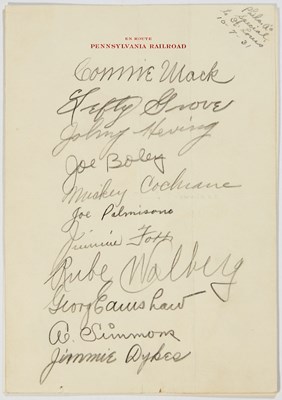 EN ROUTE
PENNSYLVANIA RAILROAD
Phila A's
Special
to St Louis
10-7-31
Connie Mack
Lefty Grove
Johny Heving
Joe Boley
Mickey Cochrane
Joe Palmisano
Jimmie Foxx
Rube Walberg
Geo Earnshaw
Al Simmons
Jimmie Dykes